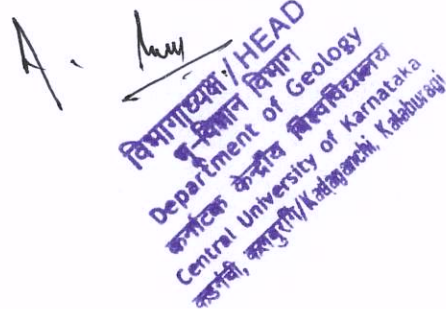 विभागाध्यक्ष/HEAD
भू-विज्ञान विभाग
Department of Geology
कर्नाटक केन्द्रीय विश्वविद्यालय
Central University of Karnataka
कडगंची, कलबुरगि/Kadaganchi, Kalaburagi